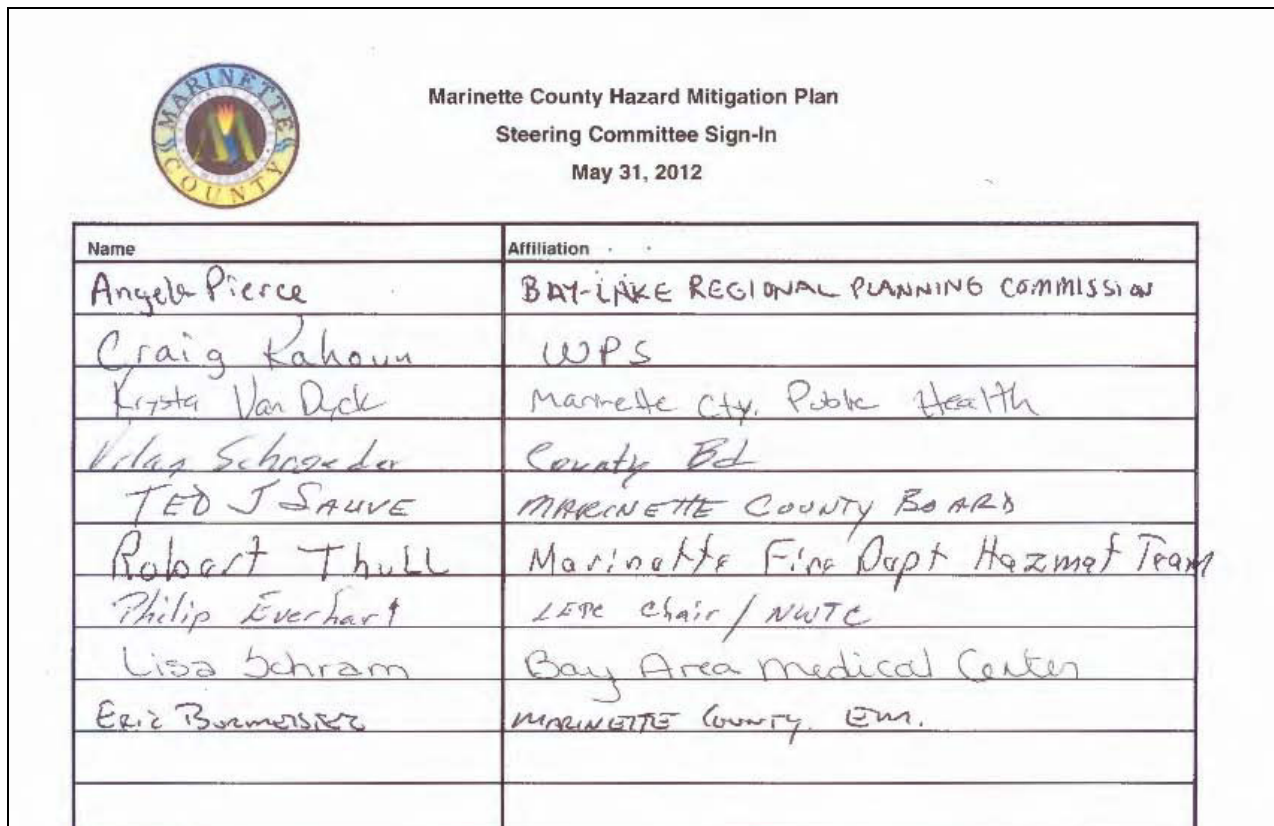 MARINETTE COUNTY
Marinette County Hazard Mitigation Plan
Steering Committee Sign-In
May 31, 2012
Name Affiliation
Angela Pierce BAY-LAKE REGIONAL PLANNING COMMISSION
Craig Kahoun WPS
Krysta Van Dyck Marinette Cty. Public Health
Schroeder County Bd
TED J SAUVE MARINETTE COUNTY BOARD
Robert Thull Marinette Fire Dept Hazmat Team
Philip Everhart LEPC Chair / NWTC
Lisa Schram Bay Area Medical Center
ERIC BURMEISTER MARINETTE COUNTY. EM.